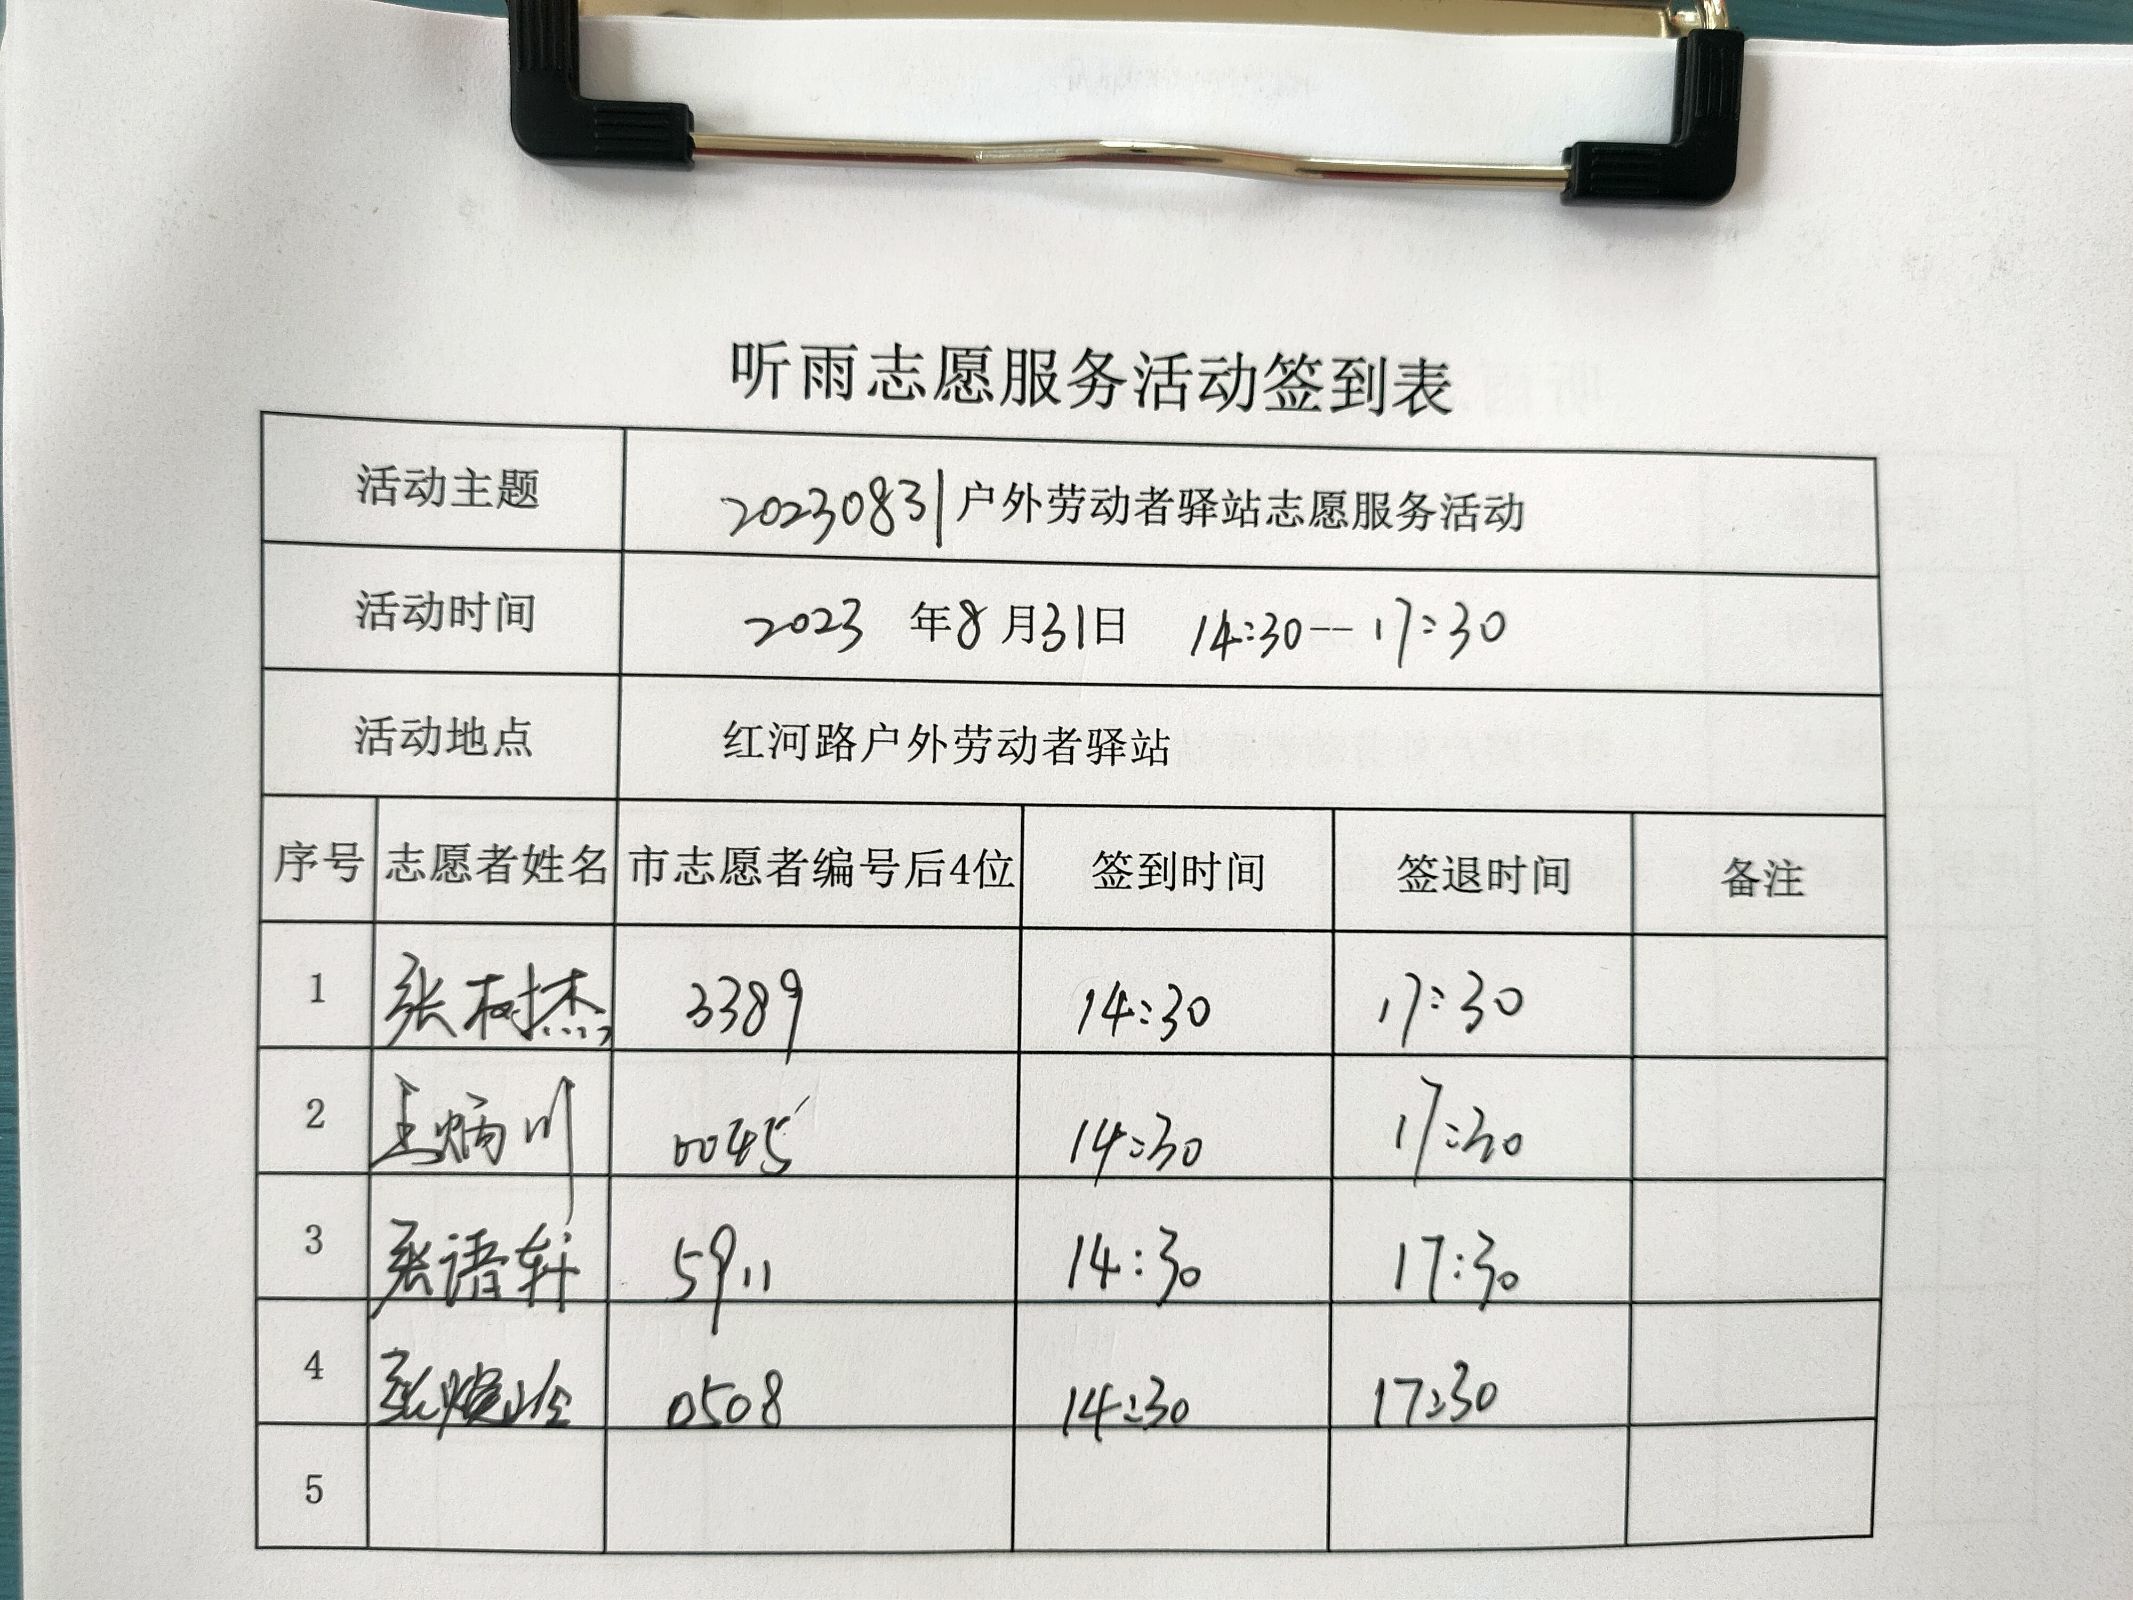 听雨志愿服务活动签到表
活动主题 20230831户外劳动者驿站志愿服务活动
活动时间 2023 年8月31日 14:30--17:30
活动地点 红河路户外劳动者驿站
序号 志愿者姓名 市志愿者编号后4位 签到时间 签退时间 备注
1 张树杰 3389 14:30 17:30
2 王炳川 0045 14:30 17:30
3 张诸轩 5911 14:30 17:30
4 张 0508 14:30 17:30
5